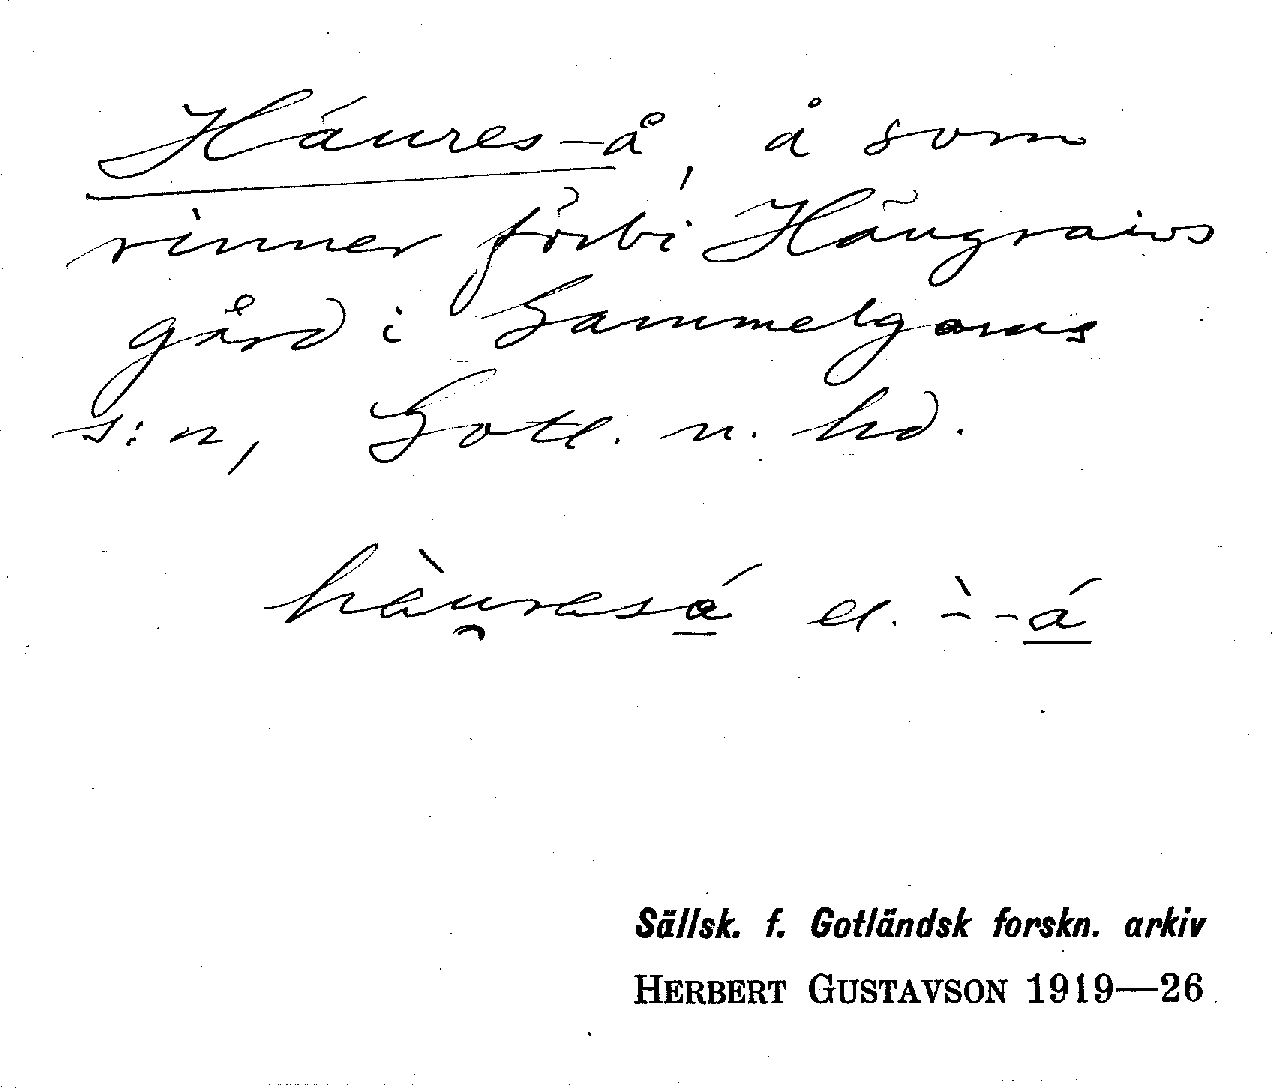 Háures-å, å som
rinner förbi Häugraivs
gård i Gammelgarns
s:n, Gotl. n. hd.
hàu̯resá el. ˋ--á
Sällsk. f. Gotländsk forskn. arkiv
HERBERT GUSTAVSON 1919—26